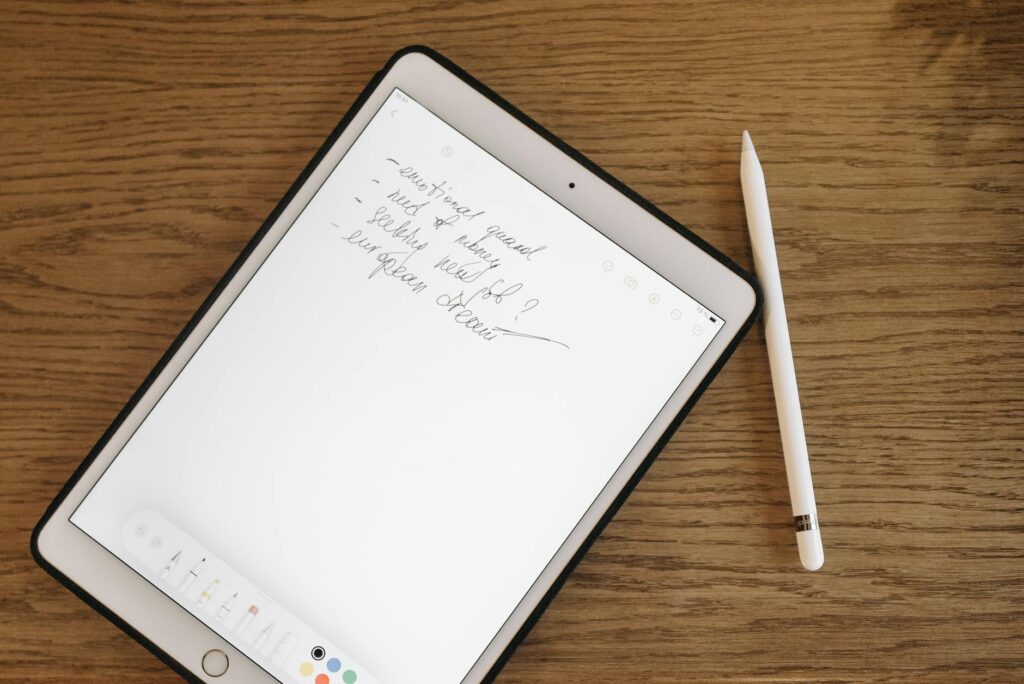 - emotional
- need of money
- seeking new job ?
- european dream